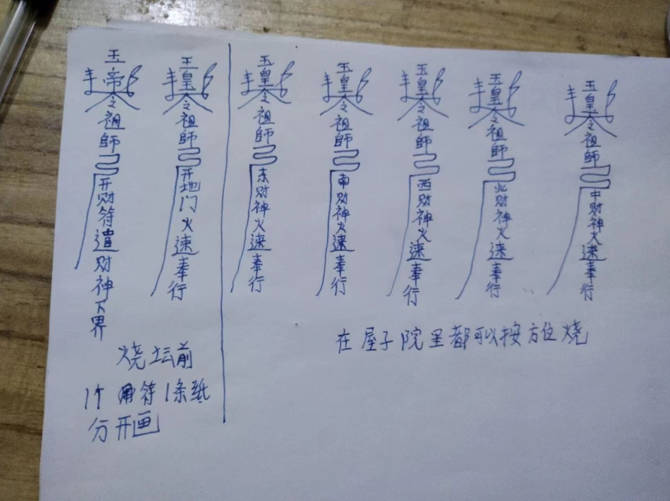 玉帝令祖師開财符遣财神下界
玉皇令祖師開地门火速奉行
玉皇令祖師东财神火速奉行
玉皇令祖師南财神火速奉行
玉皇令祖師西财神火速奉行
玉皇令祖師北财神火速奉行
玉皇令祖師中财神火速奉行
烧坛前
1个符1条纸
分开画
在屋子院里都可以按方位烧